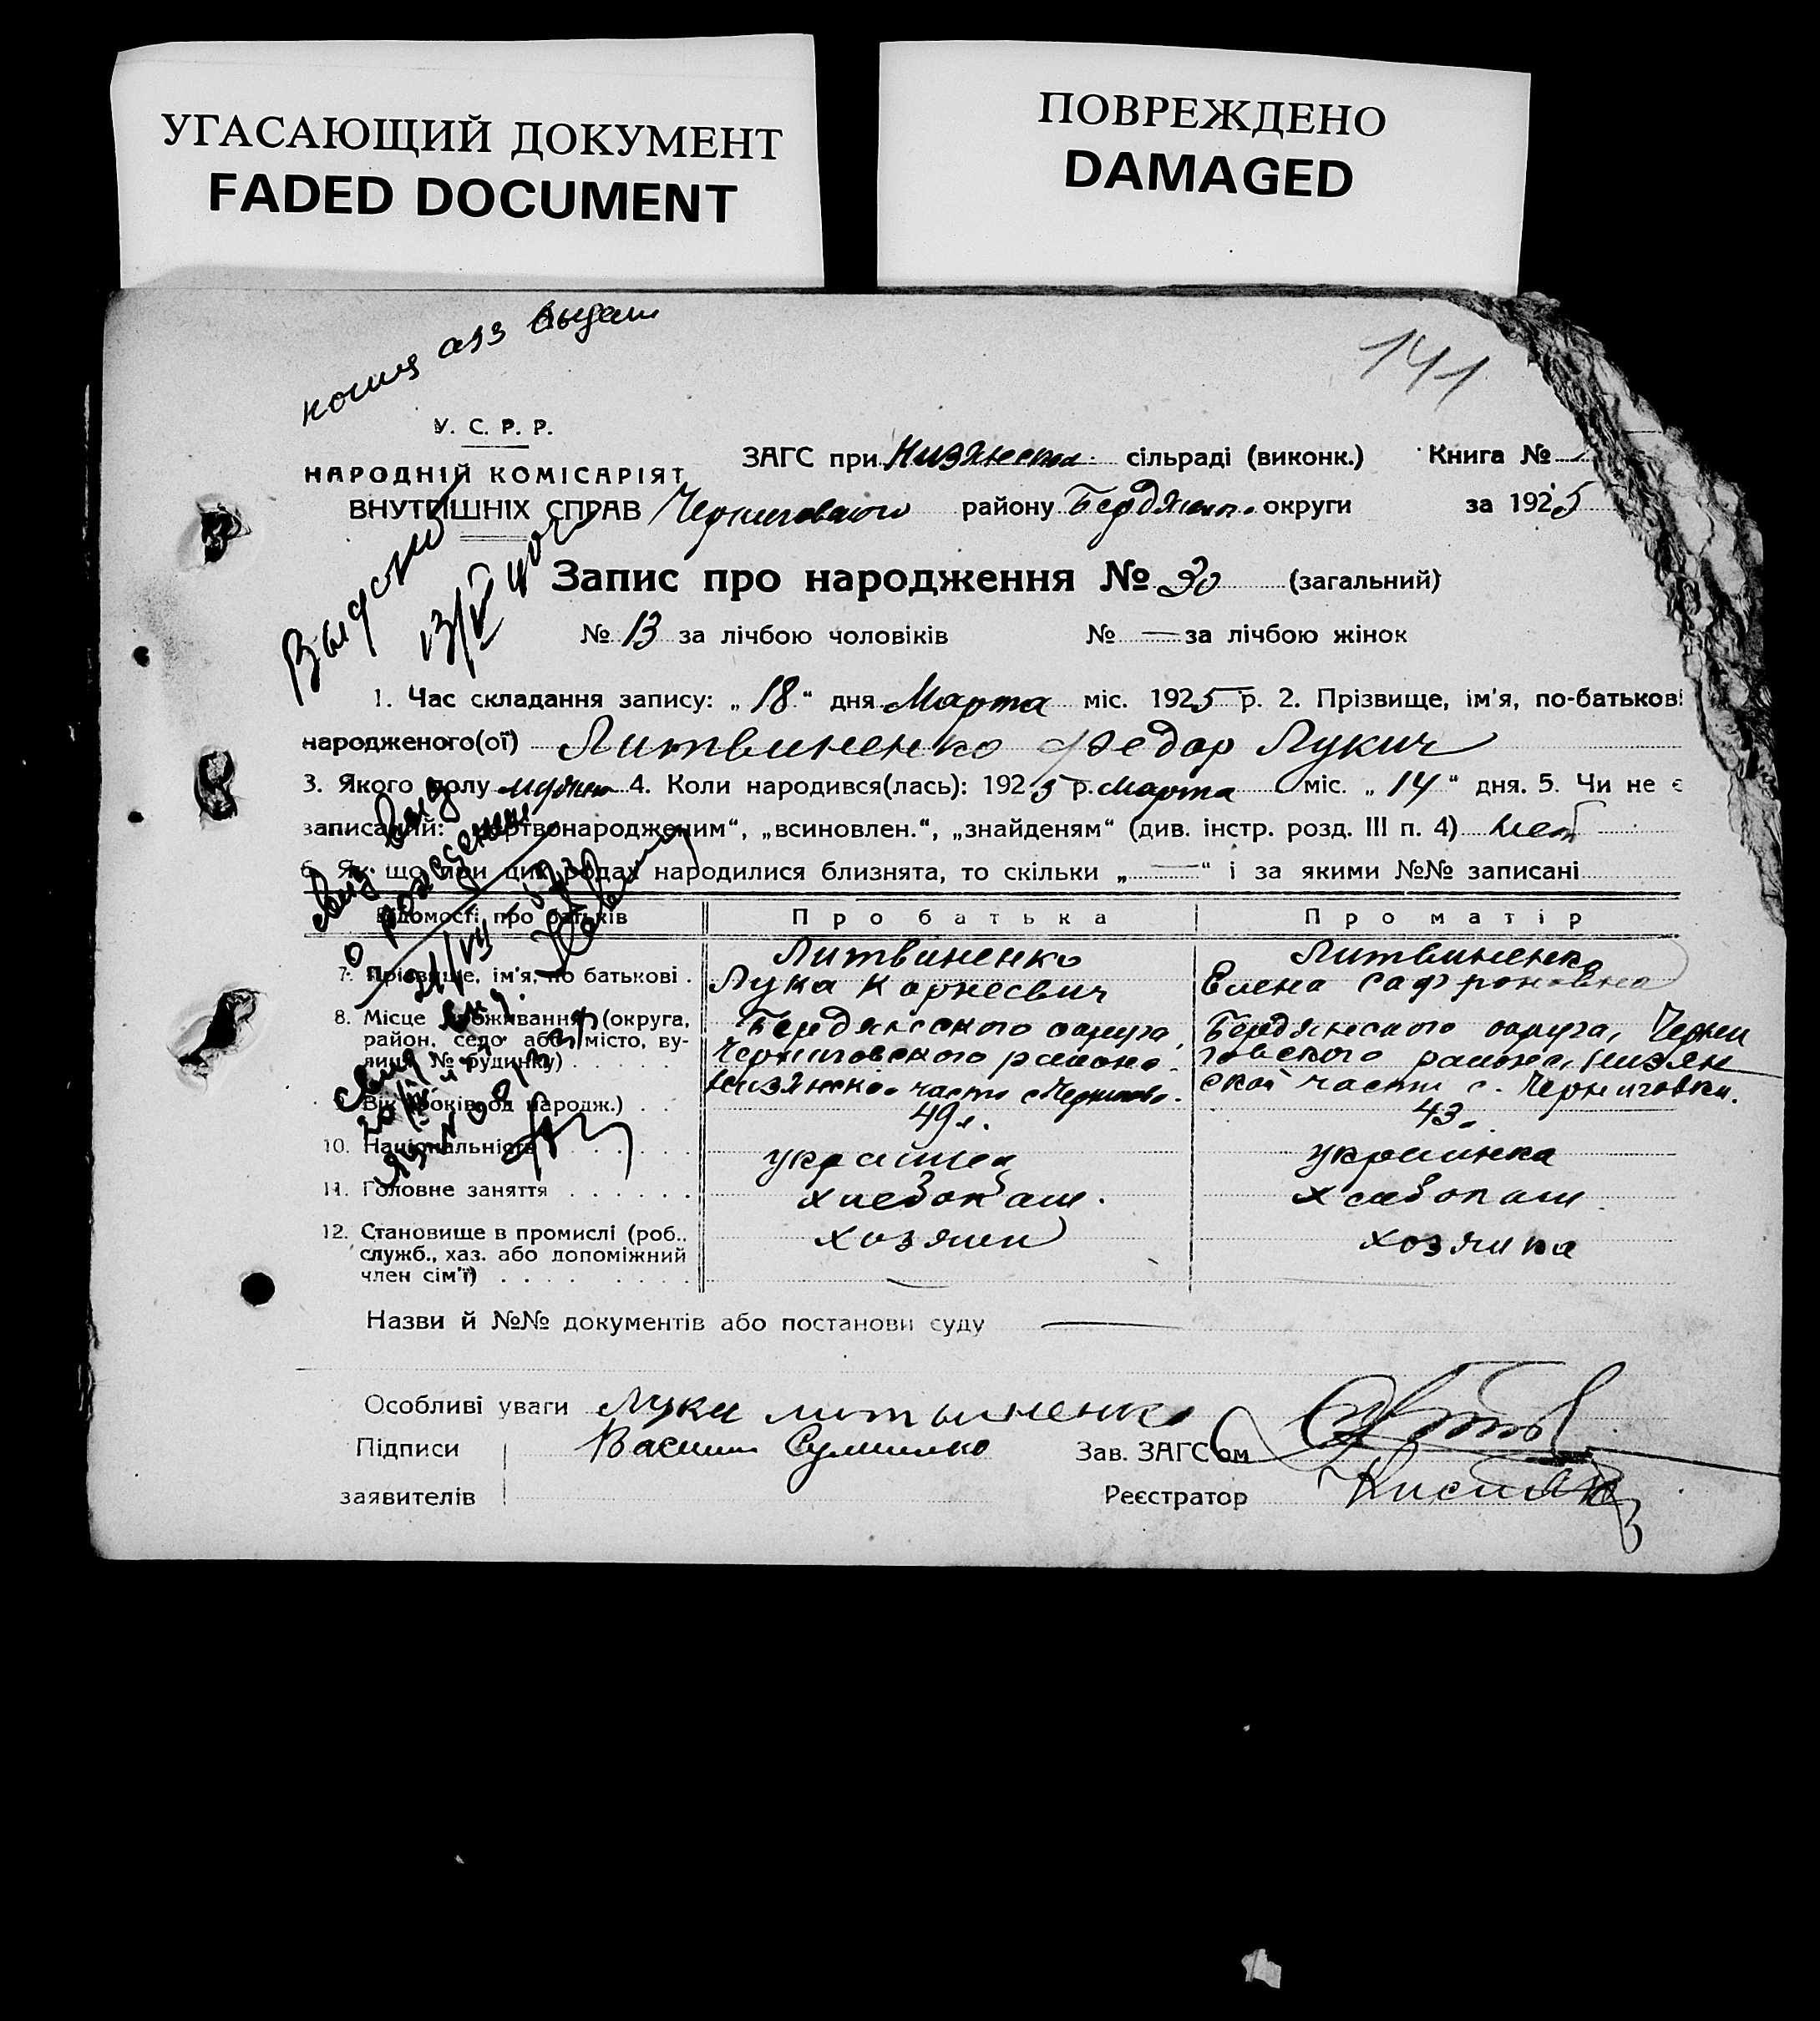 УГАСАЮЩИЙ ДОКУМЕНТ
FADED DOCUMENT
ПОВРЕЖДЕНО
DAMAGED
копия азз выдан
141
У. С. Р. Р.
НАРОДНІЙ КОМІСАРІЯТ
ВНУТРІШНІХ СПРАВ
ЗАГС при Низянском сільраді (виконк.) Книга №
Черниговского району Бердянск. округи за 1925
Запис про народження № 30 (загальний)
№ 13 за лічбою чоловіків № — за лічбою жінок
1. Час складання запису: „18“ дня Марта міс. 1925 р. 2. Прізвище, ім'я, по-батькові
народженого(ої) Литвиненко Федор Лукич
3. Якого полу мужск 4. Коли народився(лась): 1925 р. Марта міс. „14“ дня. 5. Чи не є
записаний: „мертвонародженим“, „всиновлен.“, „знайденям“ (див. інстр. розд. III п. 4) нет
6. Як що при цих родах народилися близнята, то скільки „—“ і за якими №№ записані
Відомості про батьків Про батька Про матір
7. Прізвище, ім'я, по батькові . Литвиненко Лука Корнеевич
Литвиненко Елена Сафроновна
8. Місце проживання (округа, район, село або місто, вулиця № будинку)
Бердянского округа, Черниговского района Низянской части с. Чернигов.
Бердянского округа, Черниговского района, Низянской части с. Черниговки.
9. Вік (років од народж.) 49 л. 43
10. Національність украинец украинка
11. Головне заняття хлебопаш. хлебопаш
12. Становище в промислі (роб., служб., хаз. або допоміжний член сім'ї) хозяин хозяйка
Назви й №№ документів або постанови суду —
Особливі уваги Лука Литвиненко
Підписи Василий
заявителів
Зав. ЗАГС'ом
Реєстратор
Выдано
13/V
о рождении